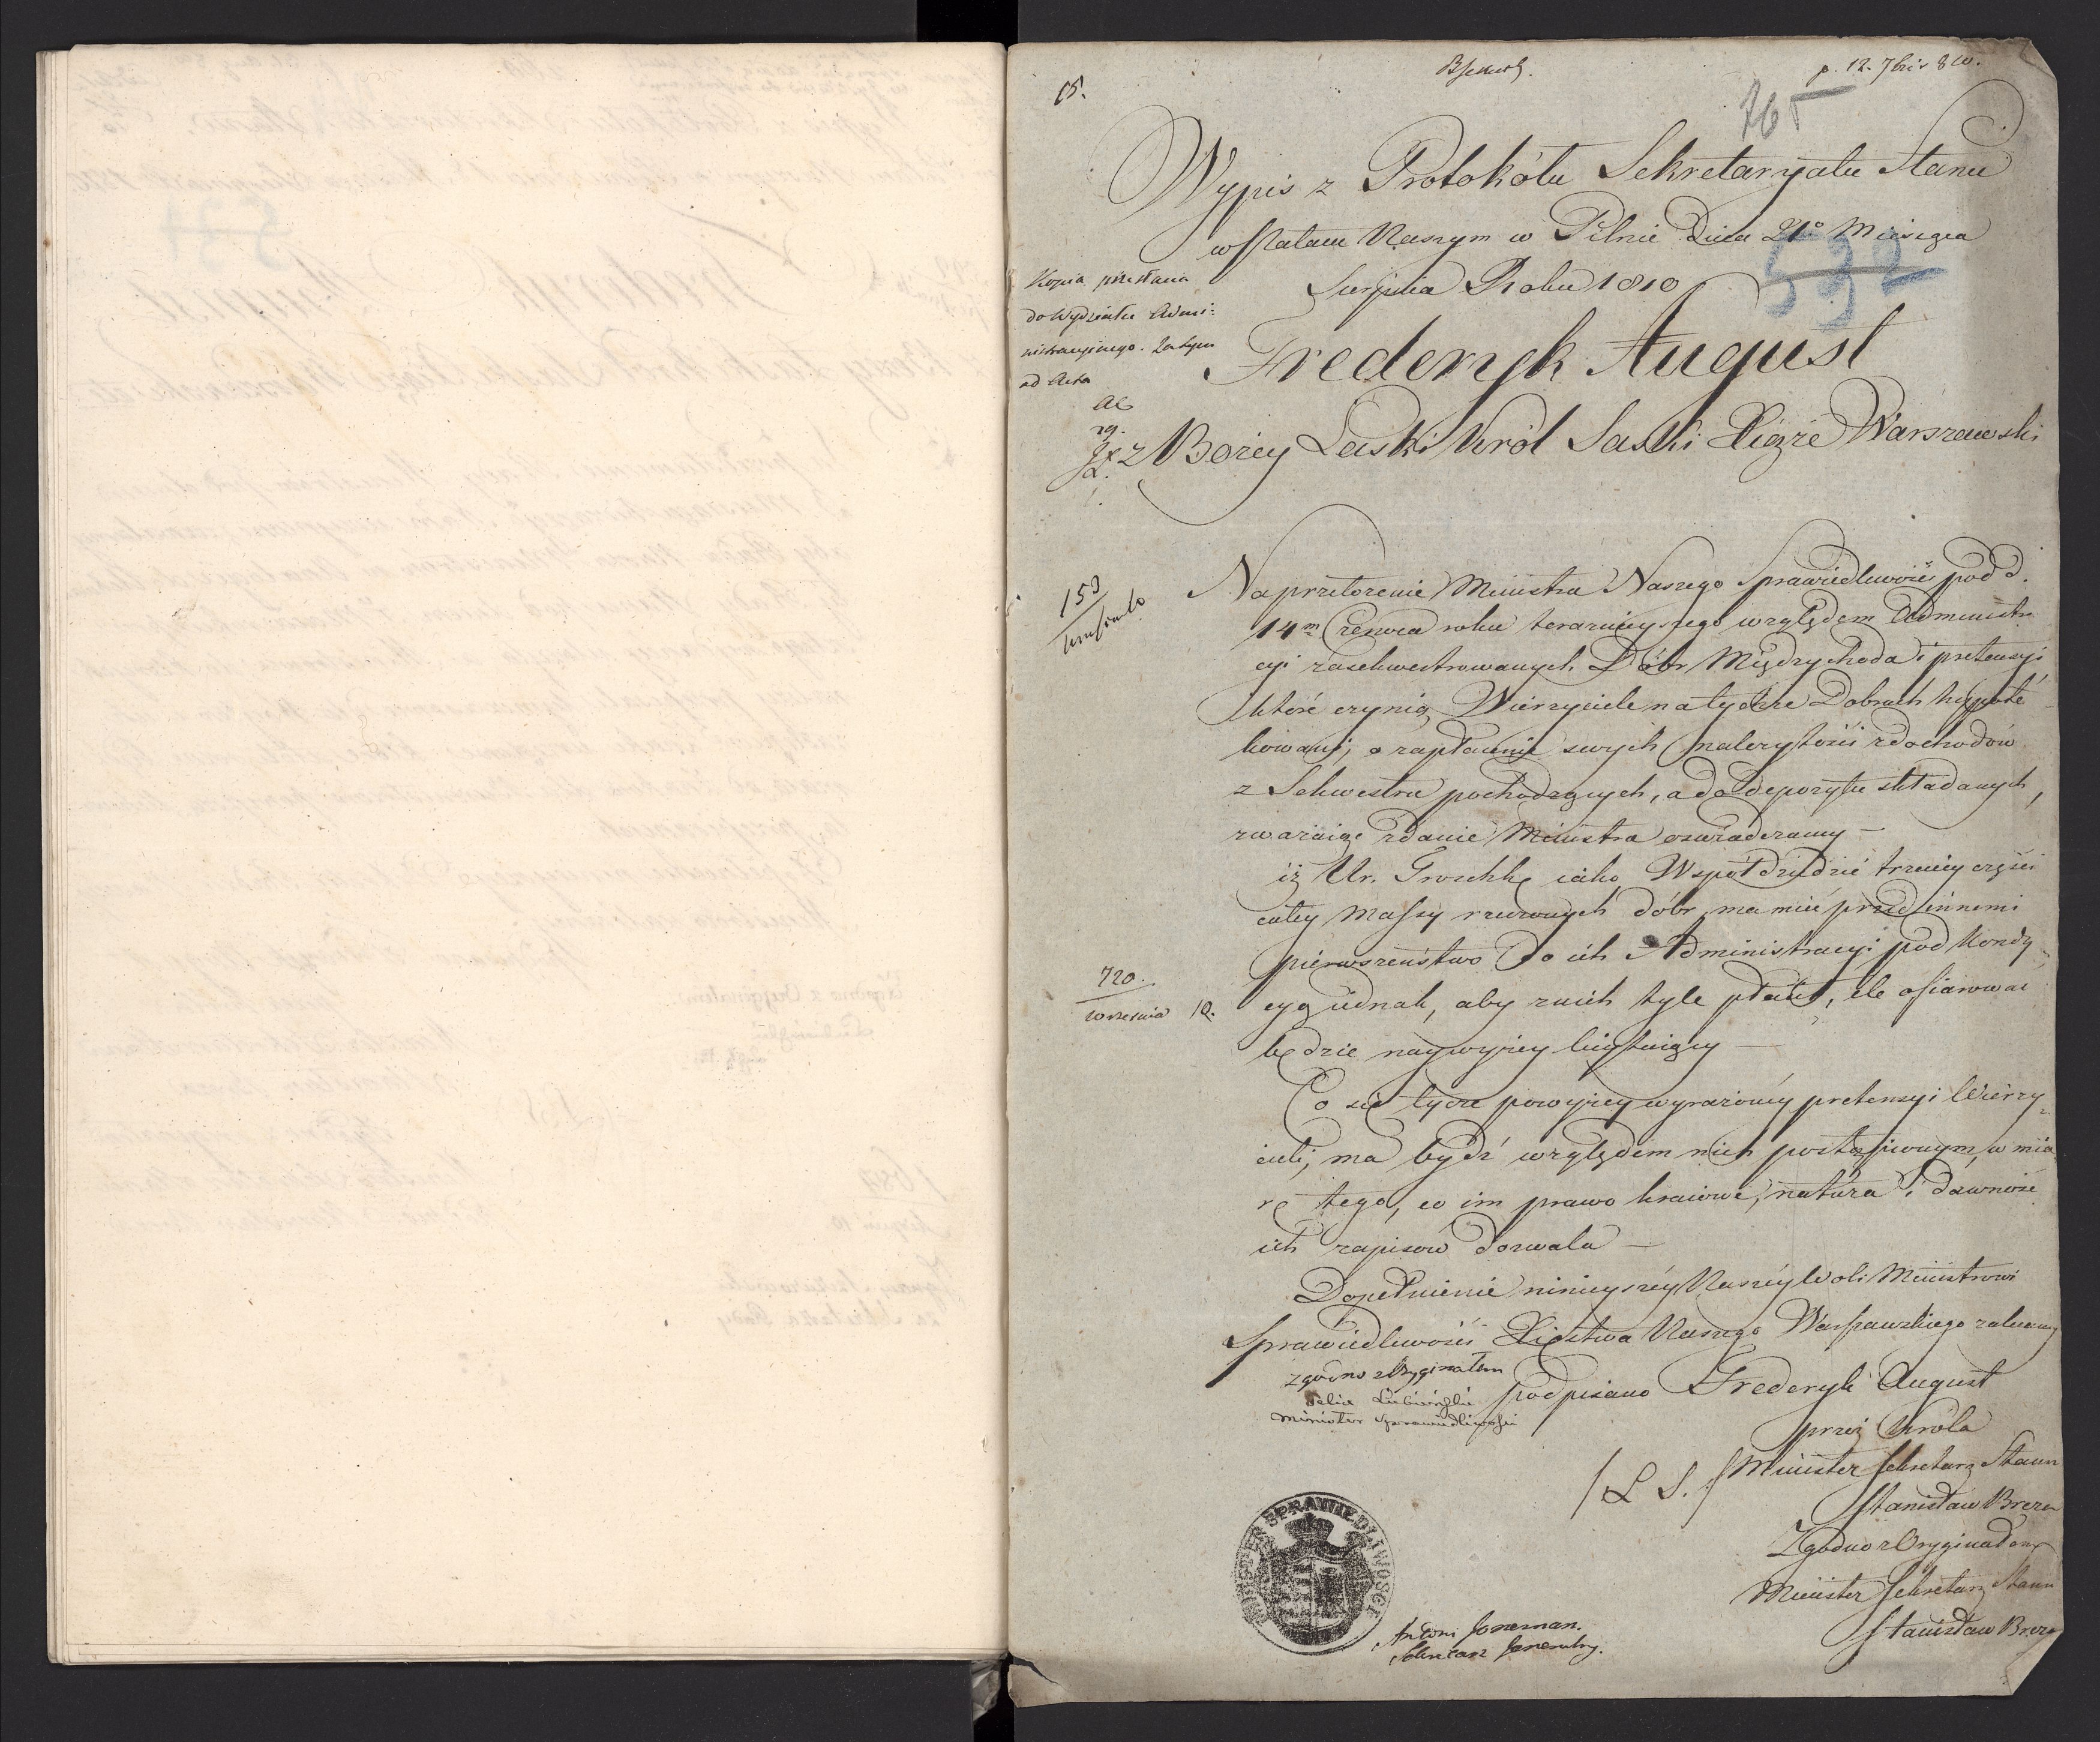 15.
p. 12. 7bris 810.
765
Wypis z Protokółu Sekretaryatu Stanu
w Pałacu Naszym w Pilnic Dnia 21º Miesiąca
532
Sierpnia Roku 1810
Kopia przesłana
do Wydziału Admi:
nistracyinego. Zatym
ad Acta
Frederyk August
z Bożey Łaski Król Saski Xiąże Warszawski
153
Na przełożenie Ministra Naszego Sprawiedliwości pod d.
14m Czerwca roku teraznieyszego względem Administra
cyi zasekwestrowanych Dóbr Międzychoda i pretensyi
które czynią Wierzyciele na tychże Dobrach hypote
kowani, o zapłacenie swych należytości z dochodów
z Sekwestru pochodzących, a do depozytu składanych,
zważaiąc zdanie Ministra oswiadczamy —
iż Ur. Groschke iako Współdziedzic trzeciey części
całey Massy rzeczonych dóbr, ma mieć przed innemi
pierwszeństwo do ich Administracyi pod Kondy
720.
września 10.
cyą iednak, aby z nich tyle płacił, ile ofiarować
będzie naywyżey licytuiący —
Co się tycze powyżey wyrażoney pretensyi Wierzy
cieli, ma bydź względem nich postąpionym, w mia
rę tego, co im prawo kraiowe, natura i dawność
ich zapisów dozwala —
Dopełnienie ninieyszéy Naszéy Woli Ministrowi
Sprawiedliwości Xięstwa Naszego Warszawskiego zalecamy
zgodno z Oryginałem
Felix Łubieński
Minister Sprawiedliwości
podpisano Frederyk August
przez Króla
/L. S./ Minister Sekretarz Stanu
Stanisław Breza
Zgodno z Oryginałem
Minister Sekretarz Stanu
Stanisław Breza
MINISTER SPRAWIEDLIWOSCI
Antoni
Sekretarz Generalny.